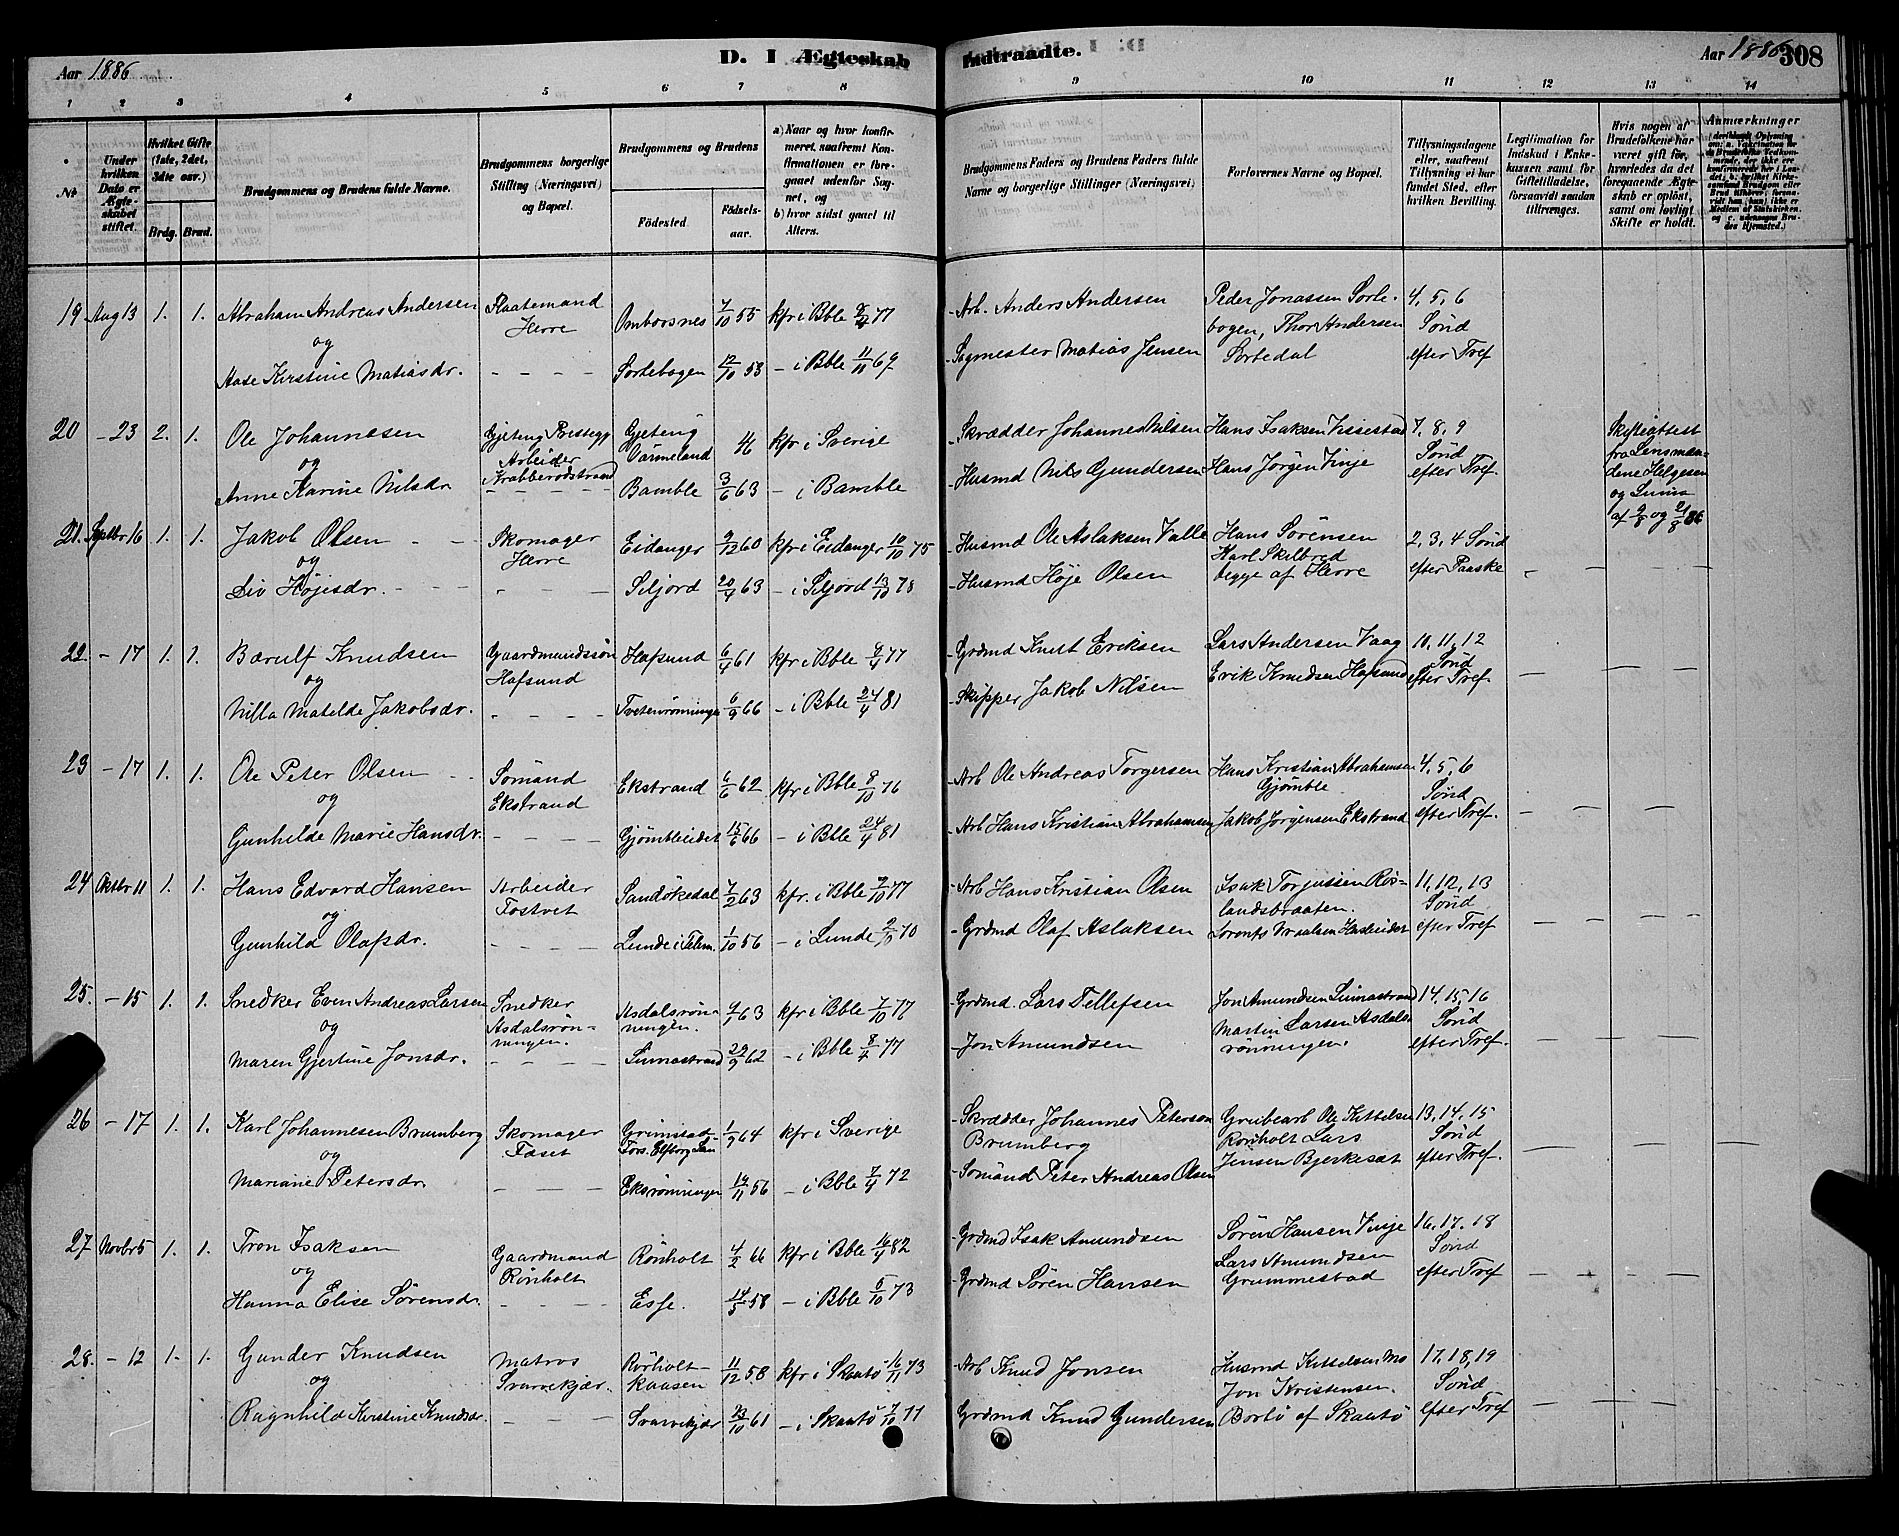 Aar 1886
D. I Ægteskab Indtraadte.
Aar 1886 308
1 2 3 4 5 6 7 8 9 10 11 12 13 14
No
Under hvilken Dato er Ægteskabet stiftet.
Hvilket Gifte (1ste, 2det, 3die osv.)
Brdg. Brud.
Brudgommens og Brudens fulde Navne.
Brudgommens borgerlige Stilling (Næringsvei) og Bopæl.
Brudgommens og Brudens
Fødested.
Fødselsaar.
a) Naar og hvor konfirmeret, saafremt Konfirmationen er foregaaet udenfor Sognet, og
b) hvor sidst gaaet til Alters.
Brudgommens Faders og Brudens Faders fulde Navne og borgerlige Stillinger (Næringsvei)
Forlovernes Navne og Bopæl.
Tillysningsdagene eller, saafremt Tillysning ei har fundet Sted, efter hvilken Bevilling.
Legitimation for Indskud i Enkekassen samt for Giftetilladelse, forsaavidt saadan tiltrænges.
Hvis nogen af Brudefolkene har været gift før, hvorledes da det foregaaende Ægteskab er opløst, samt om lovligt Skifte er holdt.
Anmærkninger
19 Aug 13 1. 1. Abraham Andreas Andersen Flaatemand Herre Omborsnes 7/10 55 kfr i Bble 77 Arb. Anders Andersen Peder Jonassen Sortebogen, Thor Andersen Sortedal 4, 5, 6 Sønd efter Tref
og
Aase Kirstine Matiasdr. - - - - Sortebogen 12/10 53 - i Bble 11/11 69 Sagmester Matias Jensen
20 - 23 2. 1. Ole Johannesen Gjeteng Prestegg Arbeider Krabberødstrand Gjeteng Værmeland kfr i Sverige Skrædder Johannes Nilsen Hans Isaksen Vissestad 7, 8, 9 Sønd efter Tref Skifteattest fra Lensmændene Helgesen og
og
Anne Karine Nilsdr - - - - Bamble 3/6 63 - i Bamble Husmd Nils Gundersen Hans Jørgen Vinje
21. Septbr 16 1. 1. Jakob Olsen Skomager Herre Eidanger 9/12 60 kfr i Eidanger 10/10 75 Husmd Ole Aslaksen Valle Hans Sørensen Karl Skilbred begge af Herre 2, 3, 4 Sønd efter Paaske
og
Liv Højesdr. - - - Siljord 20/4 63 - i Siljord 13/10 78 Husmd Høje Olsen
22. - 17 1. 1. Bærulf Knudsen Gaardmandssøn Hafsund Hafsund 6/4 61 kfr i Bble 8/4 77 Grdmd Knut Eriksen Lars Andersen Vaag Erik Knudsen Hafsund 10, 11, 12 Sønd efter Tref
og
Nilla Matilde Jakobsdr. - - - - Tvetenrønningen 6/9 66 - i Bble 24/4 81 Skipper Jakob Nilsen
23 - 17 1. 1. Ole Peter Olsen Sømand Ekstrand Ekstrand 6/6 62 kfr i Bble 8/10 76 Arb Ole Andreas Torgersen Hans Kristian Abrahamsen Gjømble 4, 5, 6 Sønd efter Tref.
og
Gunhilde Marie Hansdr. - - - Gjømbleeidet 15/6 66 - i Bble 24/4 81 Arb Hans Kristian Abrahamsen Jakob Jørgensen Ekstrand
24 Oktbr 11 1. 1. Hans Edvard Hansen Arbeider Fostvet Sandøkedal 7/2 63 kfr. i Bble 7/10 77 Arb Hans Kristian Olsen Isak Torjussen Røslandsbraaten. 11, 12, 13 Sønd efter Tref
og
Gunhild Olafsdr. - - - - Lunde i Telem. 1/10 56 - i Lunde 2/10 70 Grdmd Olaf Aslaksen
25. - 15 1. 1. Snedker Even Andreas Larsen Snedker Asdalsrønningen. Asdalsrønningen. 63 kfr i Bble 7/10 77 Grdmd. Lars Tellefsen Jon Amundsen Martin Larsen Asdalsrønningen. 14, 15, 16 Sønd efter Tref.
og
Maren Gjertine Jonsdr. - - - - 29/9 62 - i Bble 8/4 77 Jon Amundsen
26 - 17 1. 1. Karl Johannesen Brumberg Skomager Faset Grimstad Fors. Elfborg Län 1/2 64 kfr i Sverige Skrædder Johannes Peterson Brumberg Grubearb Ole Kittelsen Rønholt Lars Jensen Bjerkeset 13, 14, 15 Sønd efter Tref.
og
Mariane Petersdr. - - - Eksrønningen 19/11 56 - i Bble 7/4 72 Sømand Peter Andreas Olsen
27 Novbr 5 1. 1. Tron Isaksen Gaardmand Rønholt Rønholt 4/2 66 kfr i Bble 16/4 82 Grdmd Isak Amundsen Søren Hansen Vinje Lars Amundsen Grummestad 16, 17, 18 Sønd efter Tref
og
Hanna Elise Sørensdr. - - - - 14/3 58 - i Bble 5/10 73 Grdmd Søren Hansen
28. - 12 1. 1. Gunder Knudsen Matros Svarvekjær. Rørholtkaasen 11/12 58 kfr i Skaatø 16/11 73 Arb Knud Jonsen Husmd Kittelsen Mo Jon Kristensen. Bortø af Skaatø 17, 18, 19 Sønd efter Tref
og
Ragnhild Kirstine Knudsdr. - - - Svarvekjær 61 - i Skaatø 7/10 77 Grdmd Knud Gundersen